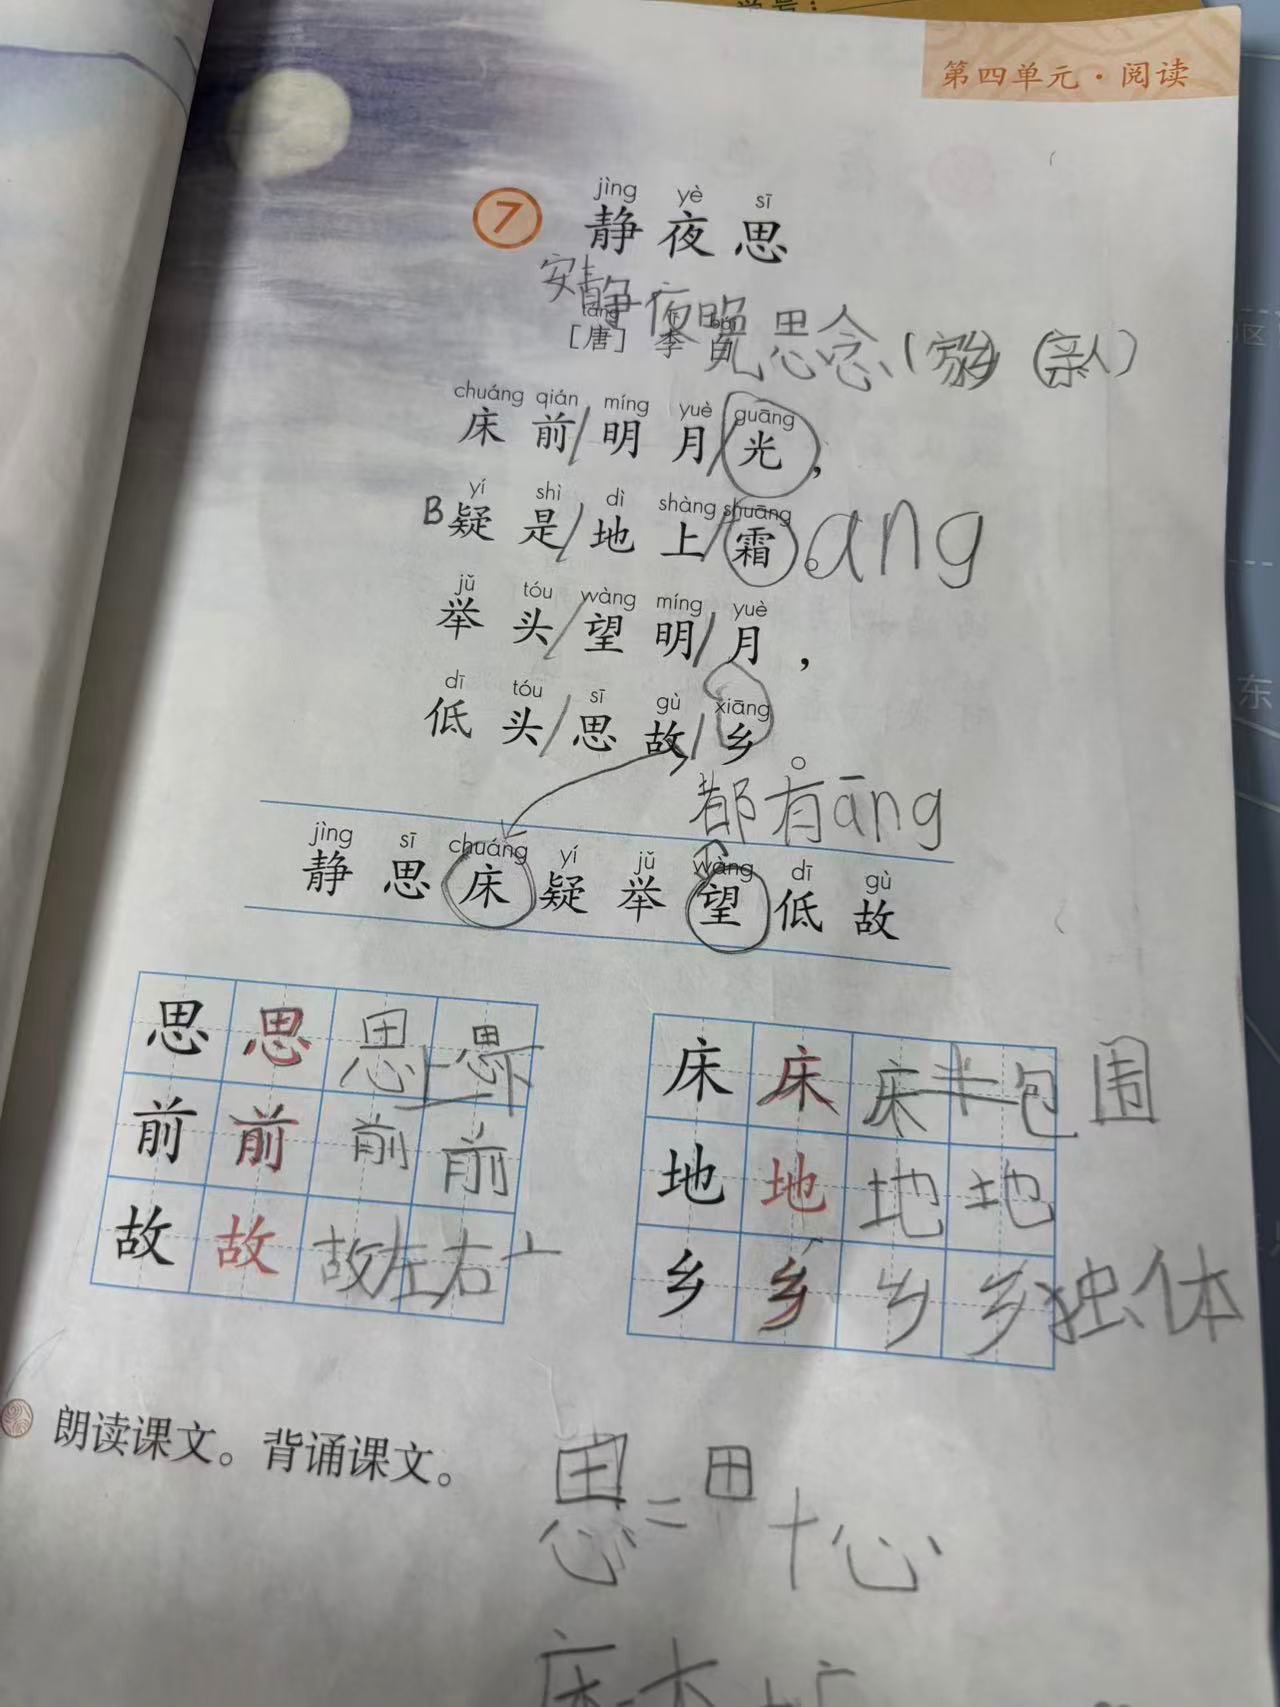 学号：
第四单元·阅读
jìng yè sī
7 静夜思
安静夜晚思念(家乡)(亲人)
[唐] 李白
chuáng qián míng yuè guāng
床前/明月/光，
yí shì dì shàng shuāng
B疑是/地上/霜。ang
jǔ tóu wàng míng yuè
举头/望明/月，
dī tóu sī gù xiāng
低头/思故/乡。
都有āng
jìng sī chuáng yí jǔ wàng dī gù
静思床疑举望低故
思 思 思 思 上下 床 床 床 半包围
前 前 前 前 地 地 地 地
故 故 故 左右 乡 乡 乡 乡 独体
朗读课文。背诵课文。
思=田+心
东
区